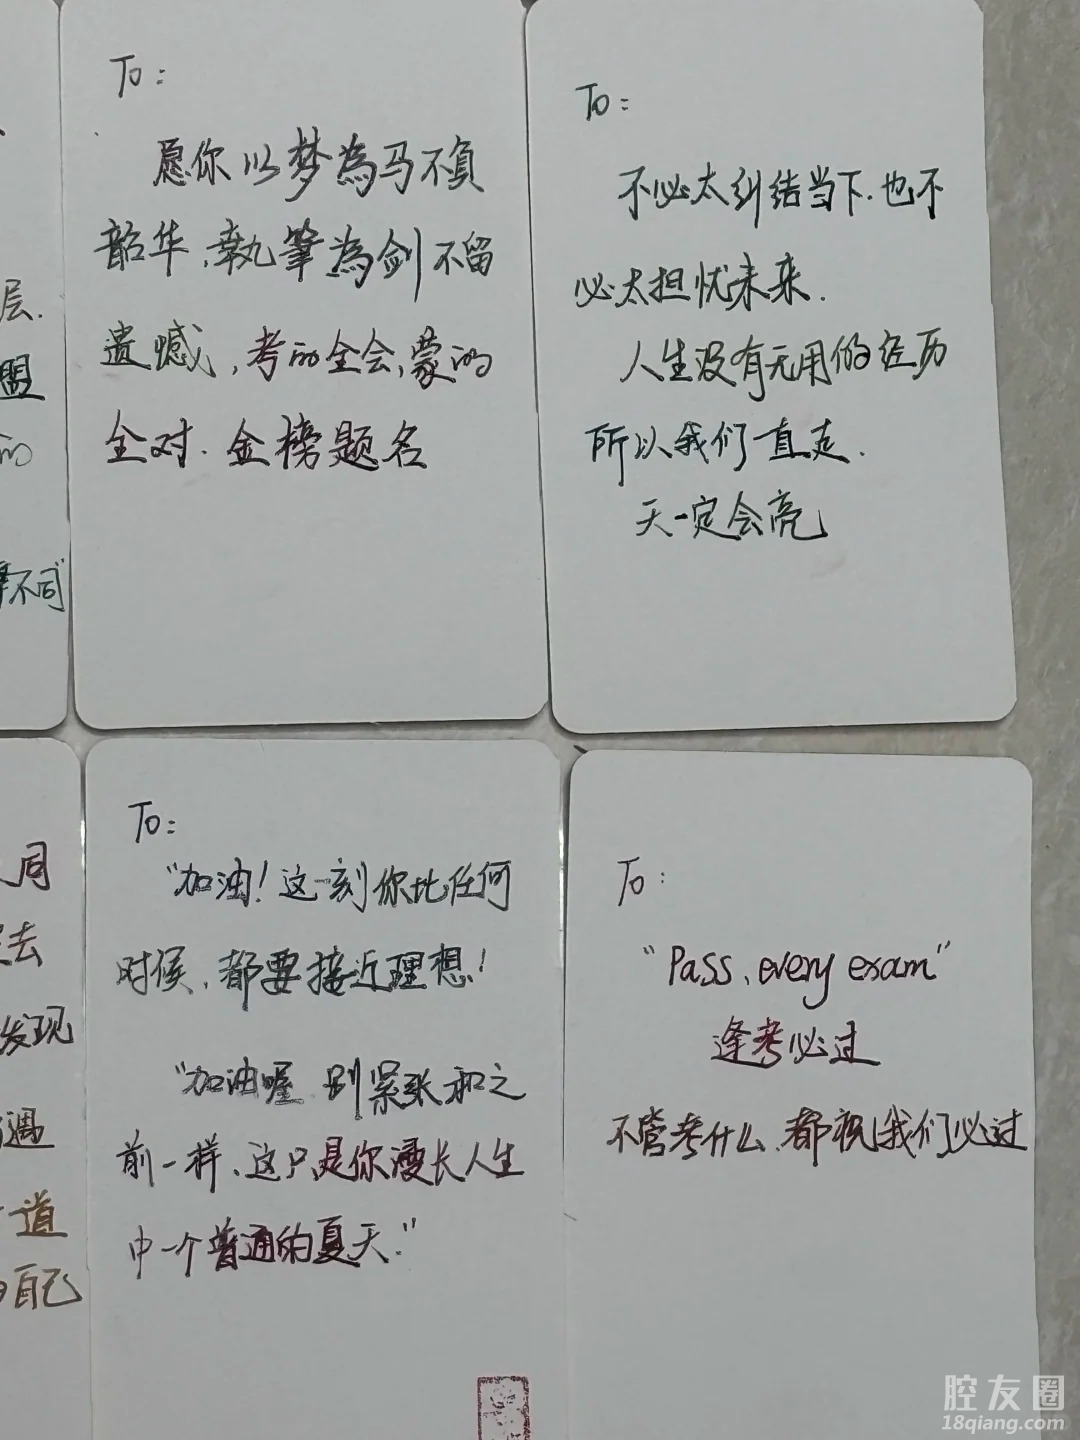 层.
盟
的
不同"
To:
愿你以梦為马不負
韶华,執筆為剑不留
遗憾,考的全会,蒙的
全对.金榜题名
To:
不必太纠结当下.也不
必太担忧未来.
人生没有无用的经历
所以我们一直走.
天一定会亮
同
去
发现
遇
道
自己
To:
"加油!这一刻你比任何
时候,都要接近理想!
"加油喔 别紧张和之
前一样、这只是你漫长人生
中一个普通的夏天."
To:
"Pass、every exam"
逢考必过
不管考什么、都祝我们必过
腔友圈
18qiang.com